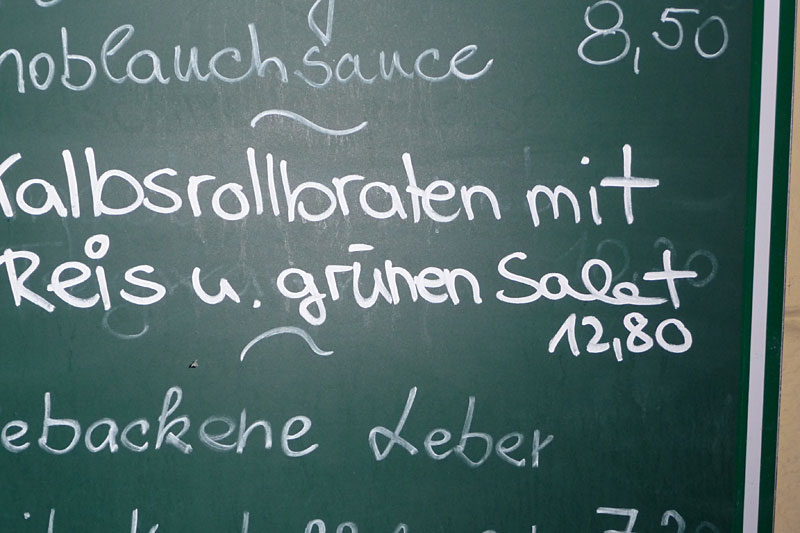 noblauchsauce 8,50
Kalbsrollbraten mit
Reis u. grünen Salat
12,80
ebackene Leber